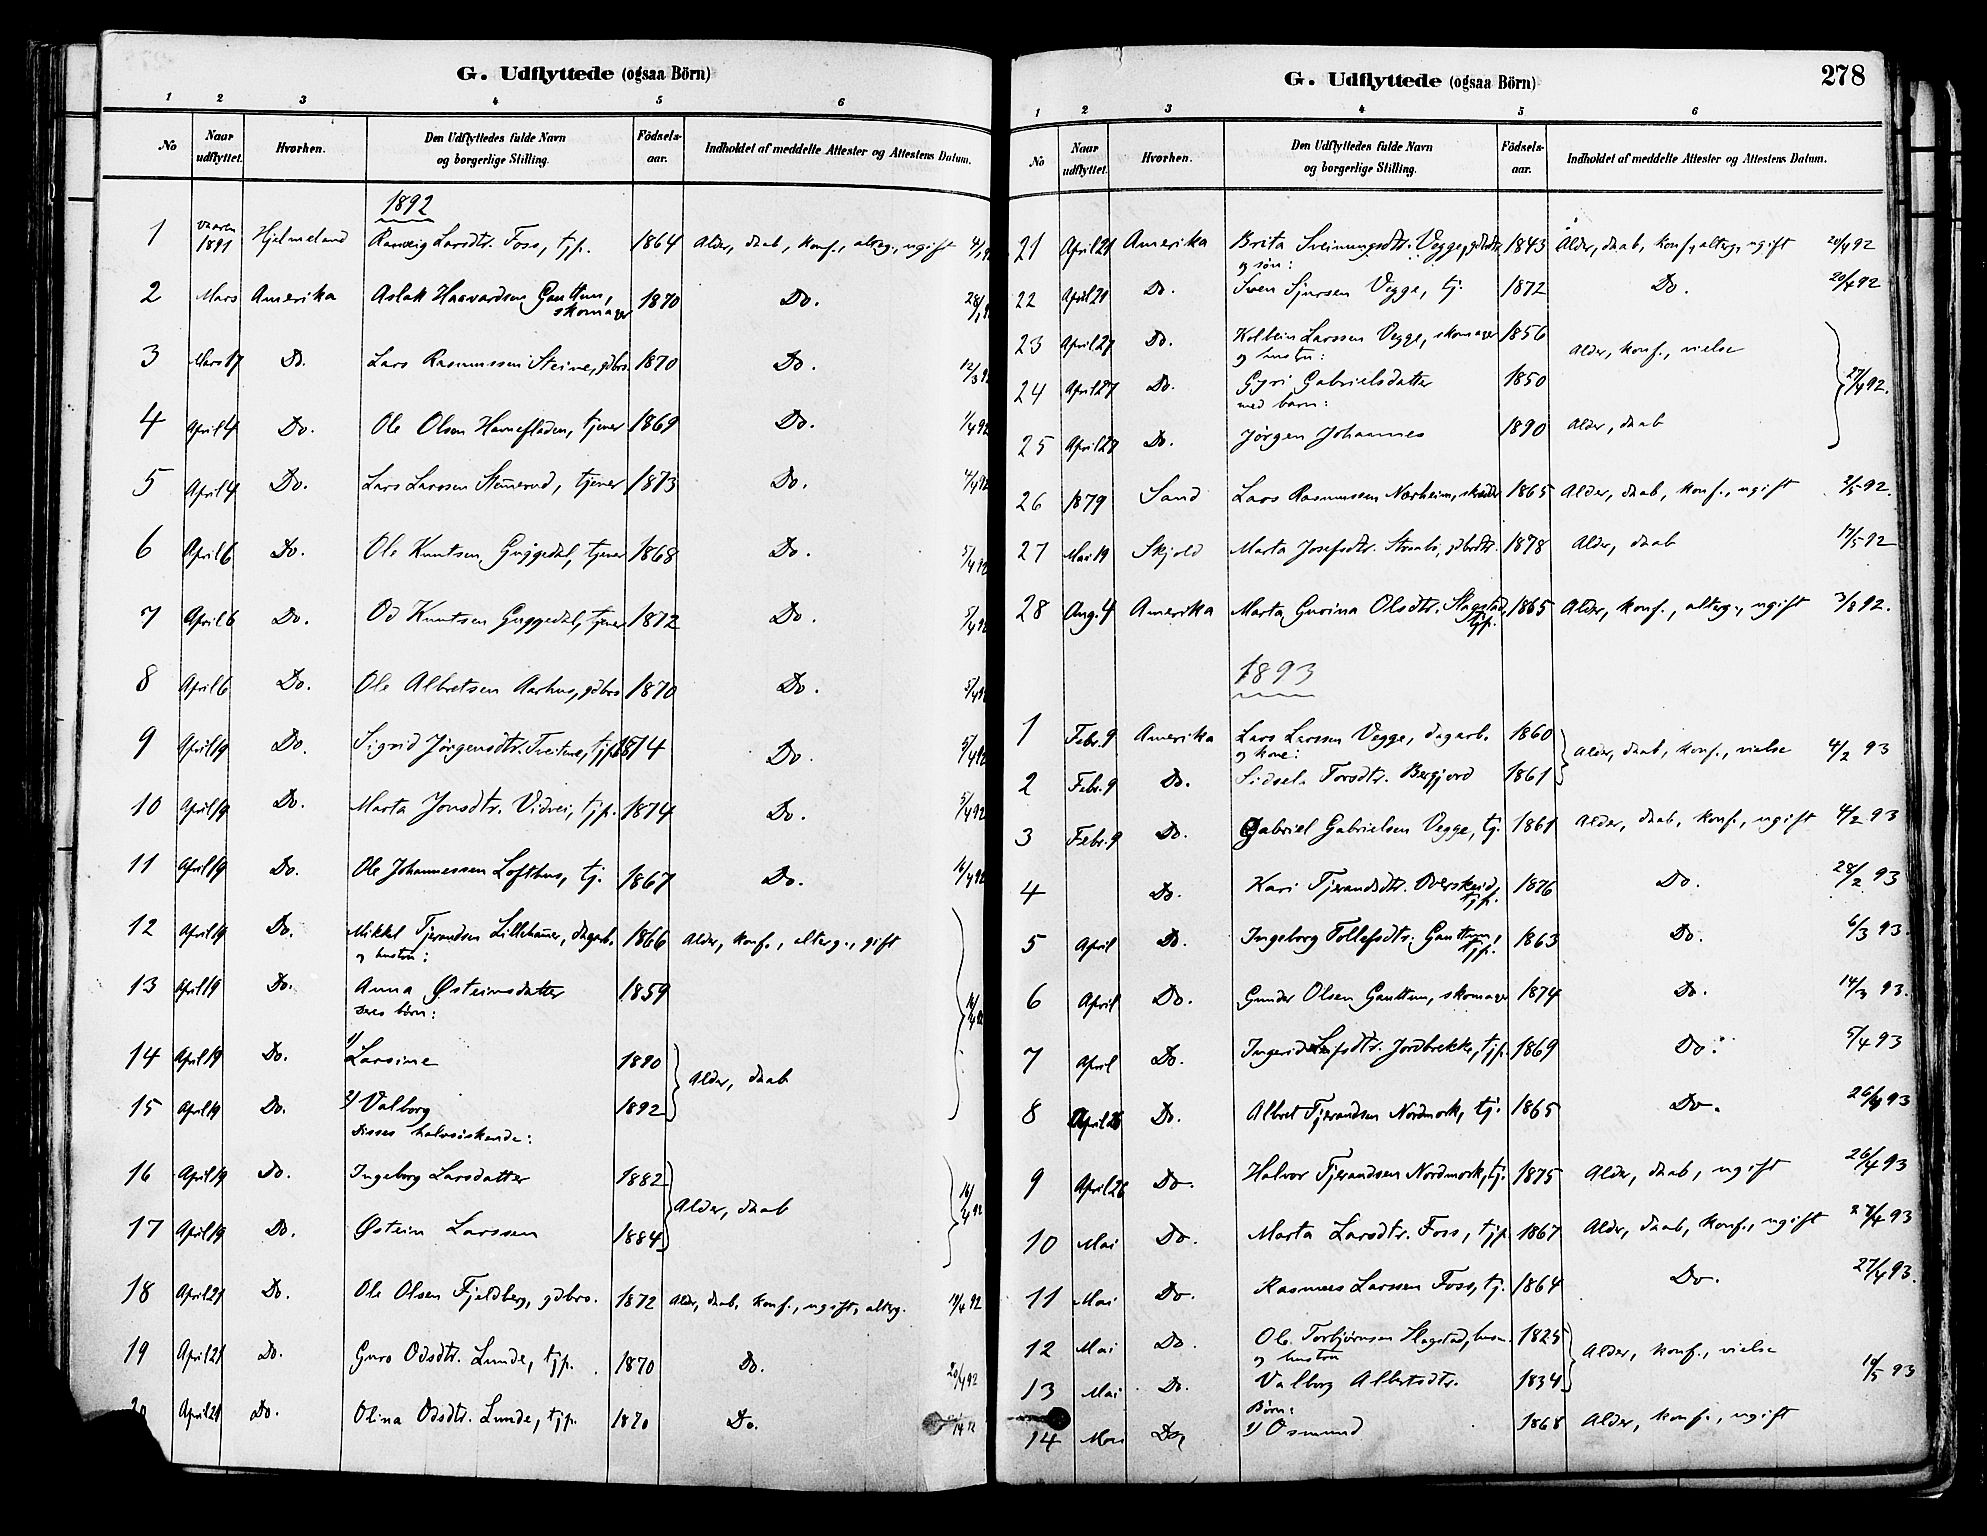 G. Udflyttede (ogsaa Börn)
1 2 3 4 5 6
No Naar udflyttet. Hvorhen. Den Udflyttedes fulde Navn og borgerlige Stilling. Födsels-aar. Indholdet af meddelte Attester og Attestens Datum.
1892
1 vaaren 1891 Hjelmeland Ranveig Larsdtr. Foss, tjp. 1864 Alder, daab, konf., alterg., ugift
2 Mars Amerika Aslak Haavardsen Gauttun, skomager 1870 Do.
3 Mars 17 Do. Lars Rasmussen Steine, gdbrs 1870 Do. 12/3 92
4 April 4 Do. Ole Olsen Havnefladen, tjener 1869 Do. 1/4 92
5 April 4 Do. Lars Larssen, tjener 1873 Do. 4/4 92
6 April 6 Do. Ole Knutsen Guggedal, tjener 1868 Do. 5/4 92
7 April 6 Do. Od Knutsen Guggedal, tjener 1872 Do. 5/4 92
8 April 6 Do. Ole Albretsen Aarhus, gdbrs 1870 Do. 5/4 92
9 April 19 Do. Sigrid Jörgensdtr. Tveitene, tjp. 1874 Do. 5/4 92
10 April 19 Do. Marta Jonsdtr. Vidvei, tjp. 1874 Do. 5/4 92
11 April 19 Do. Ole Johannessen Lofthus, tj. 1867 Do. 16/4 92
12 April 19 Do. Mikkel Tjerandsen Lillehamer, dagarb. 1866 Alder, konf., alterg., gift
og hustru:
13 April 19 Do. Anna Østeinsdatter 1859 16/4 92
deres börn:
14 April 19 Do. 1) Larsine 1890 Alder, daab
15 April 19 Do. 2) Valborg 1892
Disses halvsiskende:
16 April 19 Do. Ingeborg Larsdatter 1882 Alder, daab 16/4 92
17 April 19 Do. Østein Larssen 1884
18 April 21 Do. Ole Olsen Fjeldberg, gdbrs. 1872 Alder, daab, konf., ugift, alterg. 19/4 92
19 April 21 Do. Guro Odsdtr. Lunde, tjp. 1870 Do. 20/4 92
20 April 21 Do. Olina Odsdtr. Lunde, tjp. 1870 Do.
G. Udflyttede (ogsaa Börn) 278
1 2 3 4 5 6
No Naar udflyttet. Hvorhen. Den Udflyttedes fulde Navn og borgerlige Stilling. Födsels-aar. Indholdet af meddelte Attester og Attestens Datum.
21 April 21 Amerika Brita Sveinungsdtr. Vegge, gdbdtr. 1843 Alder, daab, konf., alterg., ugift 20/4 92
og sön:
22 April 21 Do. Sven Sjursen Vegge, tj. 1872 Do. 20/4 92
23 April 27 Do. Kolbein Larssen Vegge, skomager 1856 Alder, konf., vielse
og hustru:
24 April 27 Do. Gyri Gabrielsdatter 1850 27/4 92.
med barn:
25 April 27 Do. Jörgen Johannes 1890 Alder, daab
26 1879 Sand Lars Rasmussen Nærheim, skrædder 1865 Alder, daab, konf., ugift 2/5 92.
27 Mai 19 Skjold Marta Josefsdtr. Straabö, gdbrdtr. 1878 Alder, daab 17/5 92
28 Aug. 4 Amerika Marta Gurina Olsdtr. Slagstad, tjp. 1865 Alder, konf., alterg., ugift 3/8 92.
1893
1 Febr. 9 Amerika Lars Larssen Vegge, dagarb. 1860 Alder, daab, konf., vielse 4/2 93
og kone:
2 Febr. 9 Do. Sidsel Torsdtr. Bergjord 1861
3 Febr. 9 Do. Gabriel Gabrielsen Vegge, tj. 1861 Alder, daab, konf., ugift 4/2 93
4 Do. Kari Tjerandsdtr. Overskeid, tjp. 1876 Do. 28/2 93
5 April Do. Ingeborg Tollefsdtr. Gauttun, tjp. 1863 Do. 6/3 93.
6 April Do. Gunder Olsen Gauttun, skomager 1874 Do. 14/3 93.
7 April Do. Ingerid Leifsdtr. Jordbrekke, tjp. 1869 Do. 5/4 93
8 April 26 Do. Albret Tjerandsen Nordmork, tj. 1865 Do. 26/4 93
9 April 26 Do. Halvor Tjerandsen Nordmork, tj. 1875 Alder, daab, ugift 26/4 93
10 Mai Do. Marta Larsdtr. Foss, tjp 1867 Alder, daab, konf., ugift 27/4 93
11 Mai Do. Rasmus Larssen Foss, tj. 1864 Do. 27/4 93.
12 Mai Do. Ole Torbjörnsen Slagstad, husm. 1825 Alder, konf., vielse
og hustru
13 Mai Do. Valborg Albertsdtr. 1834 10/5 93
Börn:
14 Mai Do. 1) Osmund 1868 Alder, konf., ugift